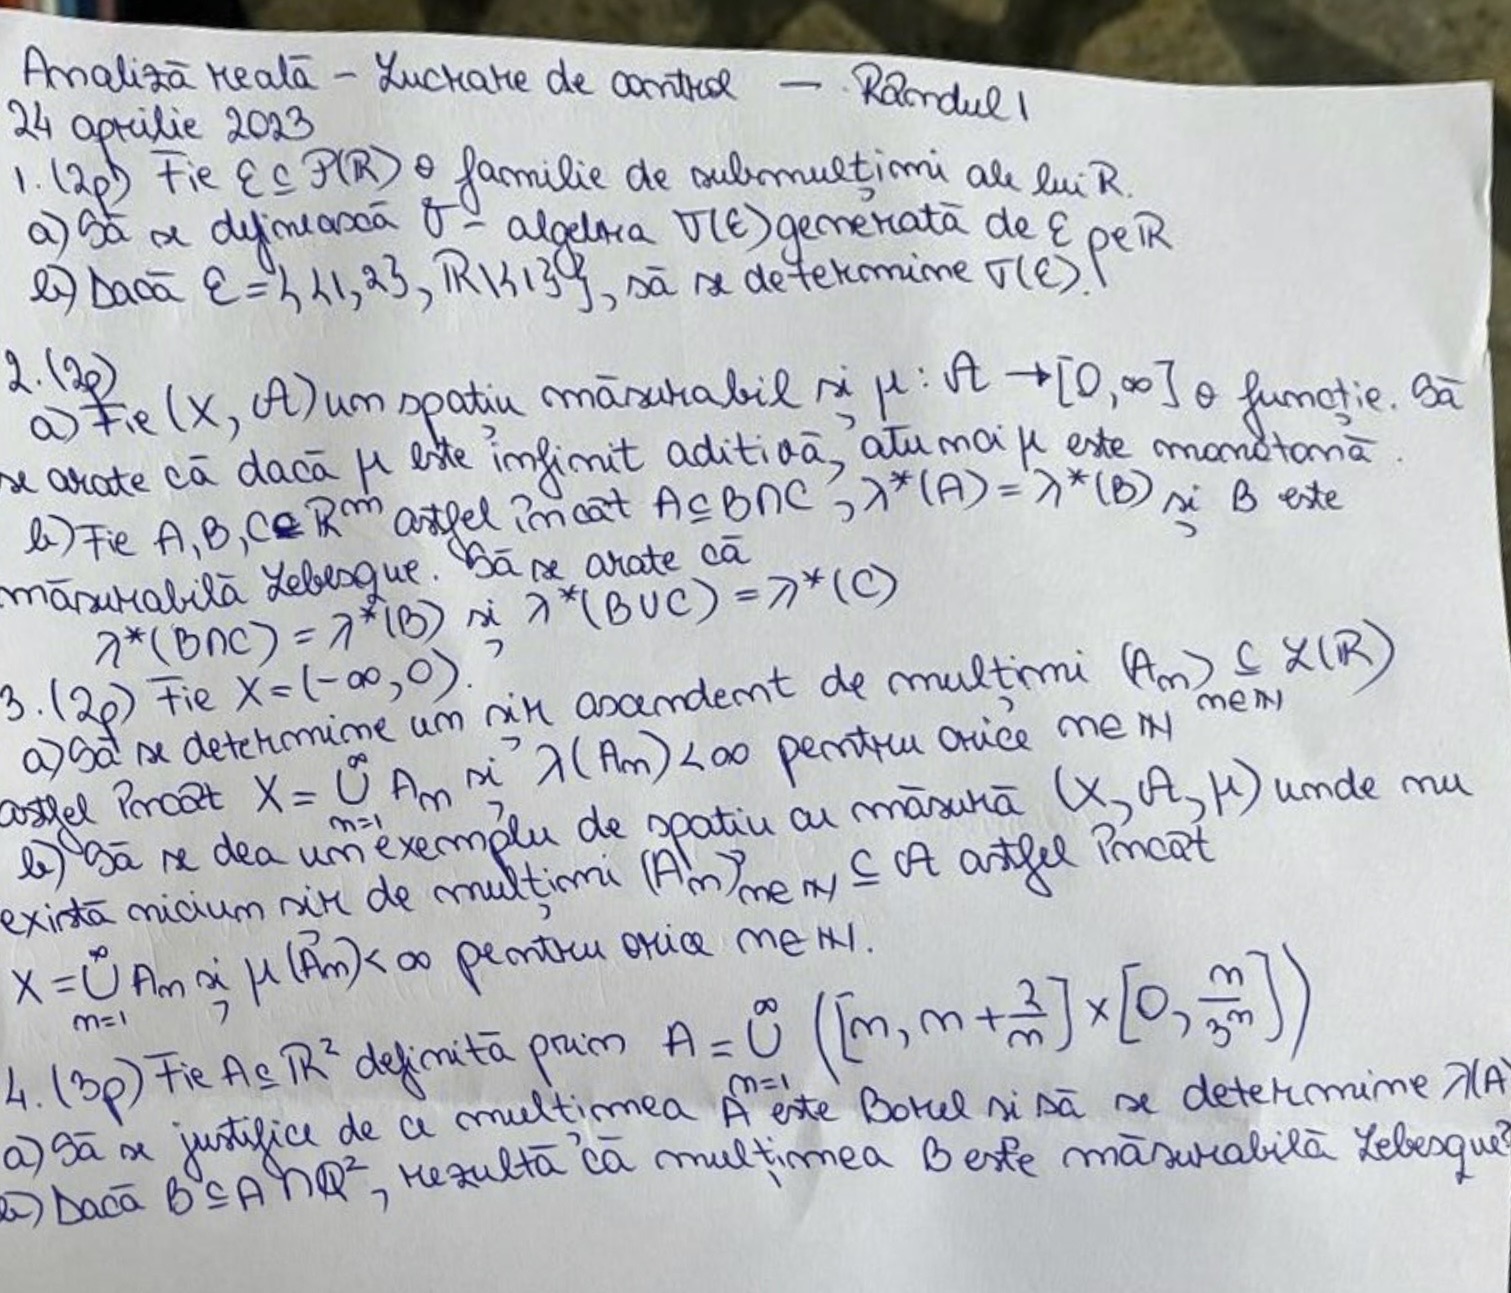 Analiză reală - Lucrare de control - Rândul 1
24 aprilie 2023
1. (2p) Fie ℰ ⊆ P(ℝ) o familie de submulțimi ale lui ℝ.
a) Să se definească σ - algebra σ(ℰ) generată de ℰ pe ℝ
b) Dacă ℰ = {{1,2}, ℝ\{1}}, să se determine σ(ℰ).
2. (2p)
a) Fie (X, 𝒜) un spațiu măsurabil și μ: 𝒜 → [0,∞] o funcție. Să
se arate că dacă μ este infinit aditivă, atunci μ este monotonă.
b) Fie A, B, C ⊆ ℝⁿ astfel încât A ⊆ B∩C, λ*(A) = λ*(B) și B este
măsurabilă Lebesgue. Să se arate că
λ*(B∩C) = λ*(B) și λ*(B∪C) = λ*(C)
3. (2p) Fie X = (-∞, 0).
a) Să se determine un șir ascendent de mulțimi (Aₙ)ₙ∈ℕ ⊆ ℒ(ℝ)
astfel încât X = ∪ₙ₌₁^∞ Aₙ și λ(Aₙ) < ∞ pentru orice n∈ℕ
b) Să se dea un exemplu de spațiu cu măsură (X, 𝒜, μ) unde nu
există niciun șir de mulțimi (Aₙ)ₙ∈ℕ ⊆ 𝒜 astfel încât
X = ∪ₙ₌₁^∞ Aₙ și μ(Aₙ) < ∞ pentru orice n∈ℕ.
4. (3p) Fie A ⊆ ℝ² definită prin A = ∪ₙ₌₁^∞ ([n, n + 2/n] × [0, n/3ⁿ])
a) Să se justifice de ce mulțimea A este Borel și să se determine λ(A)
b) Dacă B ⊆ A∩ℚ², rezultă că mulțimea B este măsurabilă Lebesgue?